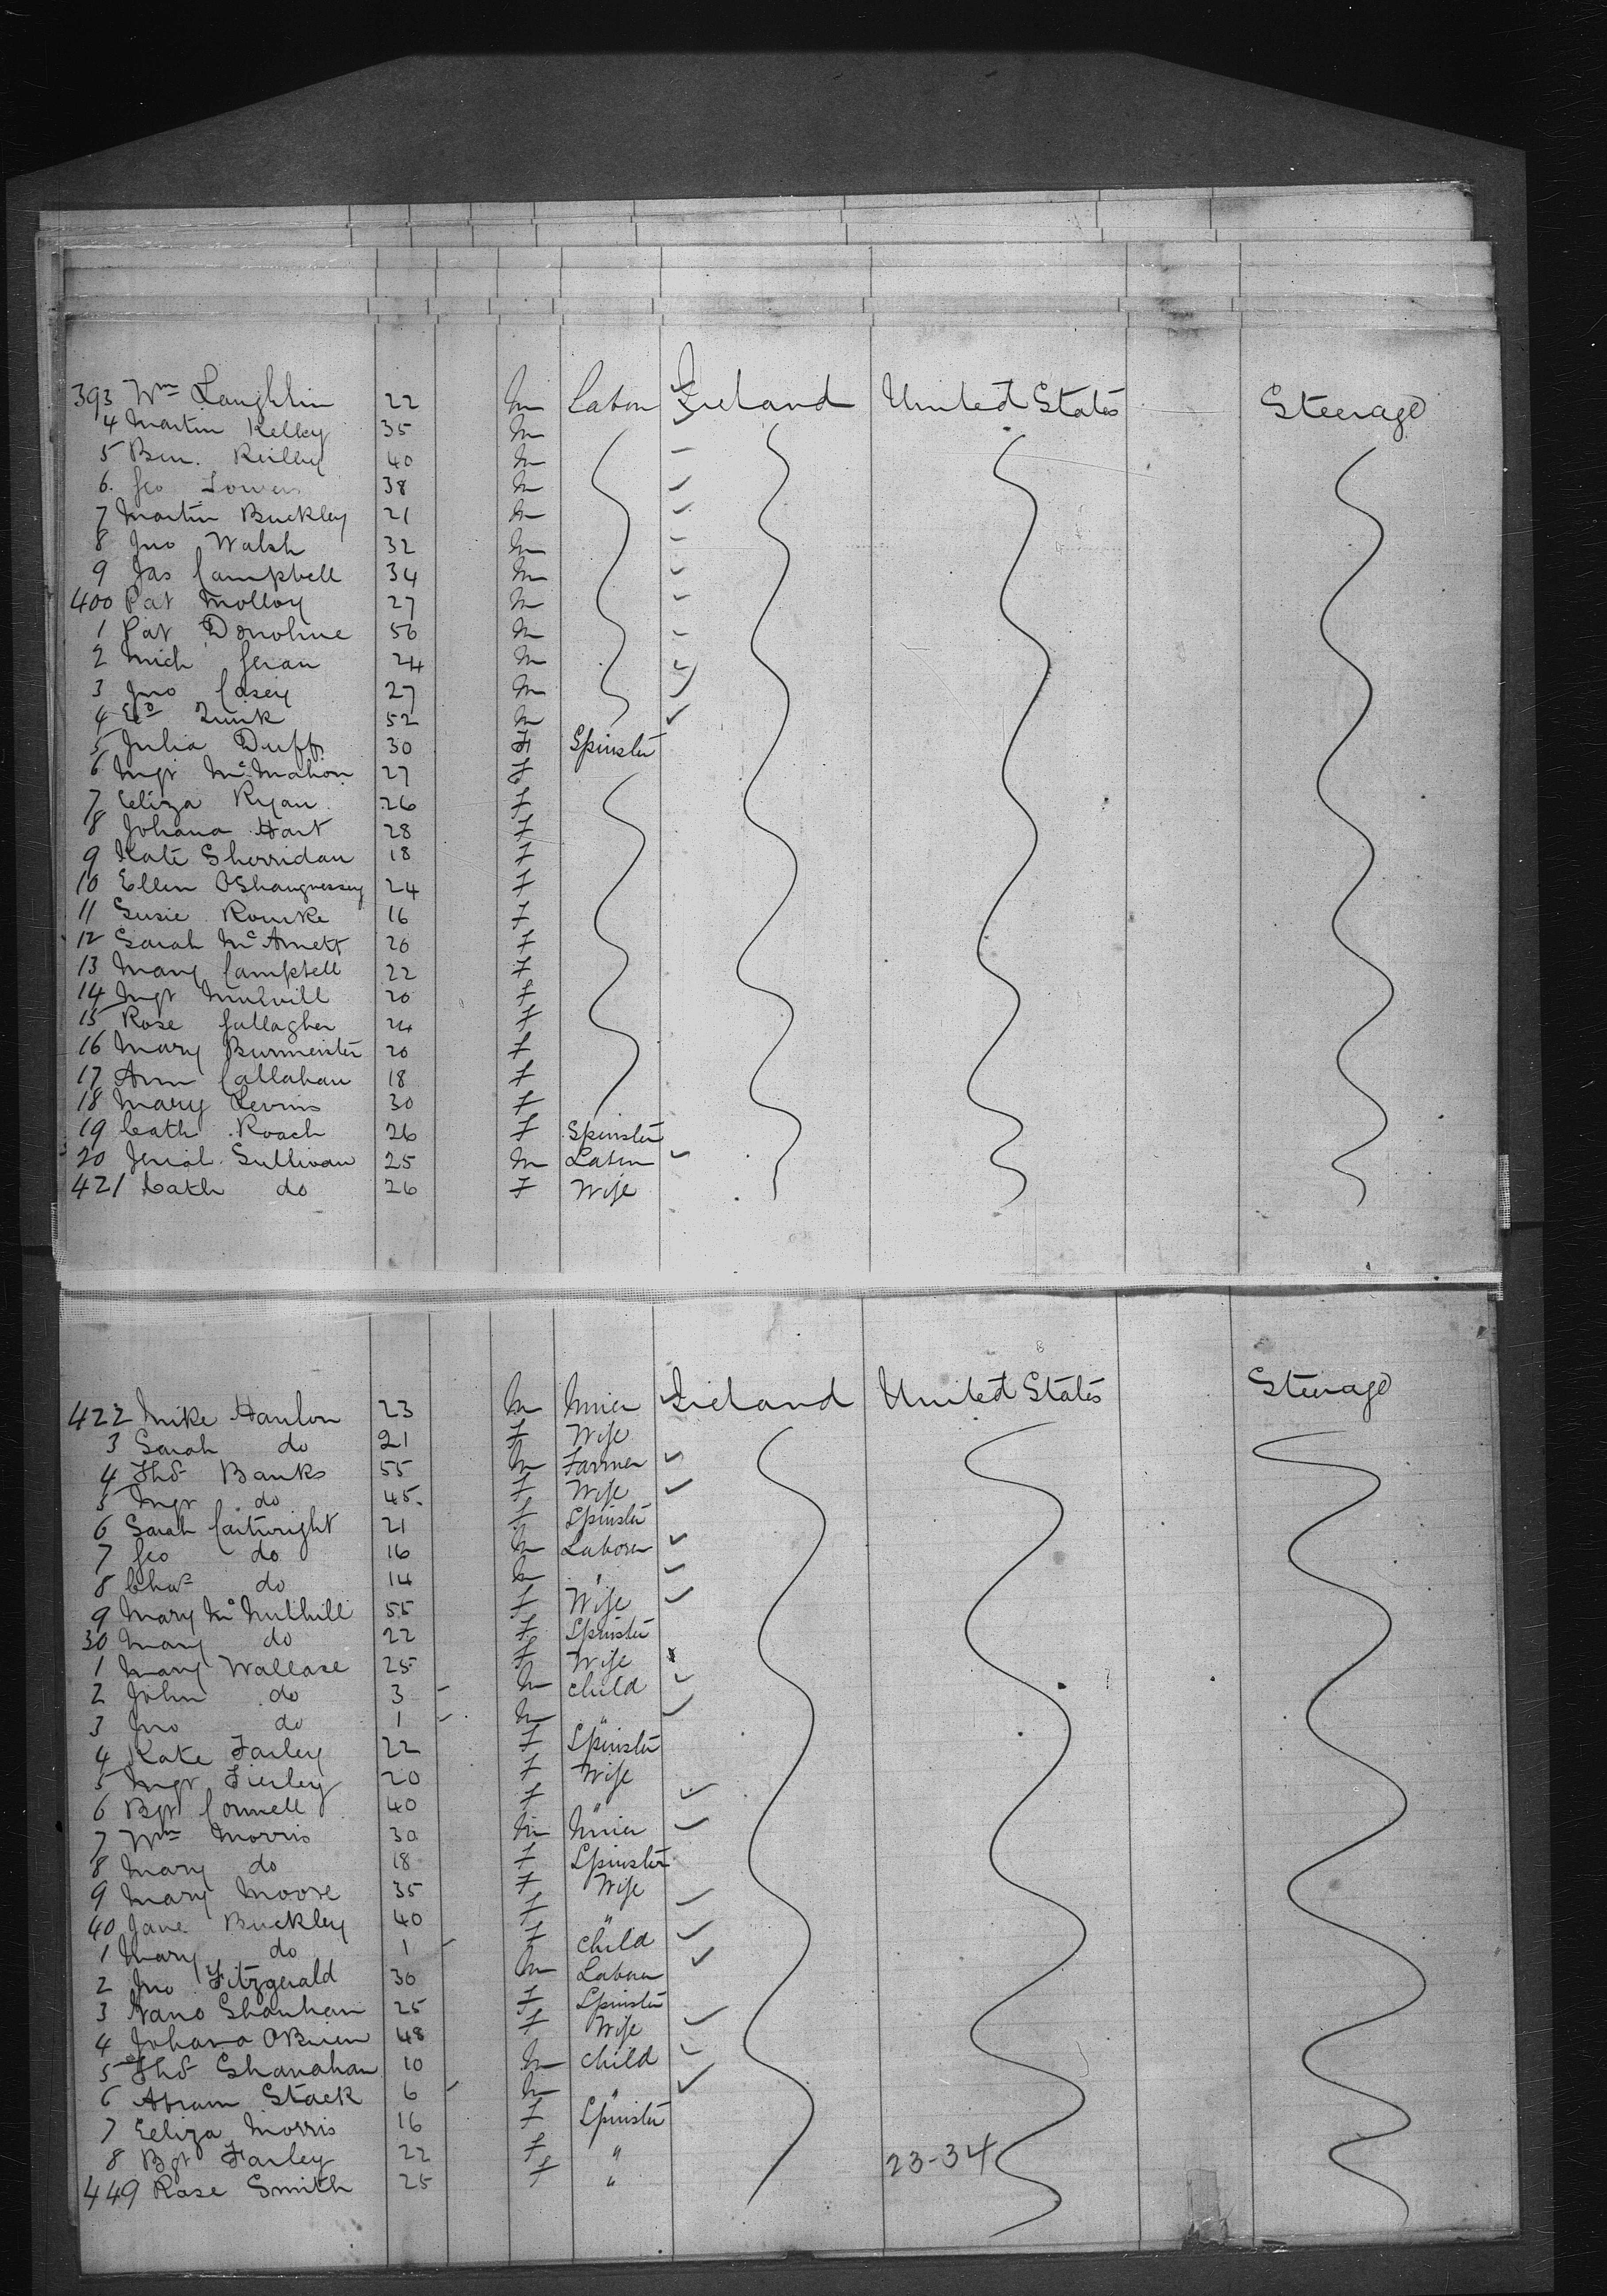 393 Wm Laughlin 22 M Labor Ireland United States Steerage
4 Martin Kelley 35 M
5 Ben. Reilley 40 M
6. Geo 38 M
7 Martin Buckley 21 M
8 Jno Walsh 32 M
9 Jas Campbell 34 M
400 Pat Molloy 27 M
1 Pat Donohue 56 M
2 Mich Geran 24 M
3 Jno Casey 27 M
4 Ed Quirk 52 M
5 Julia Duffy 30 F Spinster
6 Mgt McMahon 27 F
7 Eliza Ryan 26 F
8 Johana Hart 28 F
9 Kate Sherridan 18 F
10 Ellen OShaugnessey 24 F
11 Susie Rourke 16 F
12 Sarah McArnett 20 F
13 Mary Campbell 22 F
14 Mgt 20 F
15 Rose Gallagher 24 F
16 Mary Burmeister 20 F
17 Ann Callahan 18 F
18 Mary Levins 30 F
19 Cath Roach 26 F Spinster
20 Sullivan 25 M Labor
421 Cath do 26 F Wife
422 Mike Hanlon 23 M Miner Ireland United States Steerage
3 Sarah do 21 F Wife
4 Thos Banks 55 M Farmer
5 Mgt do 45. F Wife
6 Sarah Cartwright 21 F Spinster
7 Geo do 16 M Laborer
8 Chas do 14 M "
9 Mary McMulhill 55 F Wife
30 Mary do 22 F Spinster
1 Mary Wallace 25 F Wife
2 John do 3 M Child
3 Jno do 1 M "
4 Kate Farley 22 F Spinster
5 Mgt Fierley 20 F Wife
6 Bgt Connell 40 F "
7 Wm Morris 30 M Miner
8 Mary do 18 F Spinster
9 Mary Moore 35 F Wife
40 Jane Buckley 40 F "
1 Mary do 1 F Child
2 Jno Fitzgerald 30 M Laborer
3 Nano Shanhan 25 F Spinster
4 Johana OBrien 48 F Wife
5 Thos Shanahan 10 M Child
6 Abram Stack 6 M "
7 Eeliza Morris 16 F Spinster
8 Bgt Farley 22 F " 23-34
449 Rose Smith 25 F "